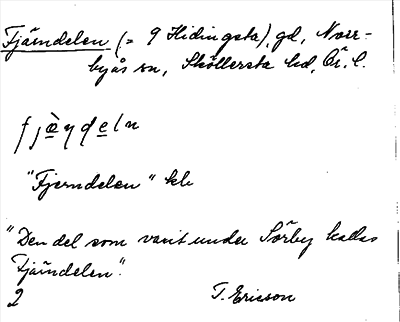 Fjärndelen (= 9 Hidingsta), gd, Norr-
byås sn, Sköllersta hd, Ör. l.
fjä̀ṇdeln
"Fjerndelen" kb
"Den del som varit under Sörby kallas
Fjärndelen".
2 T. Ericson